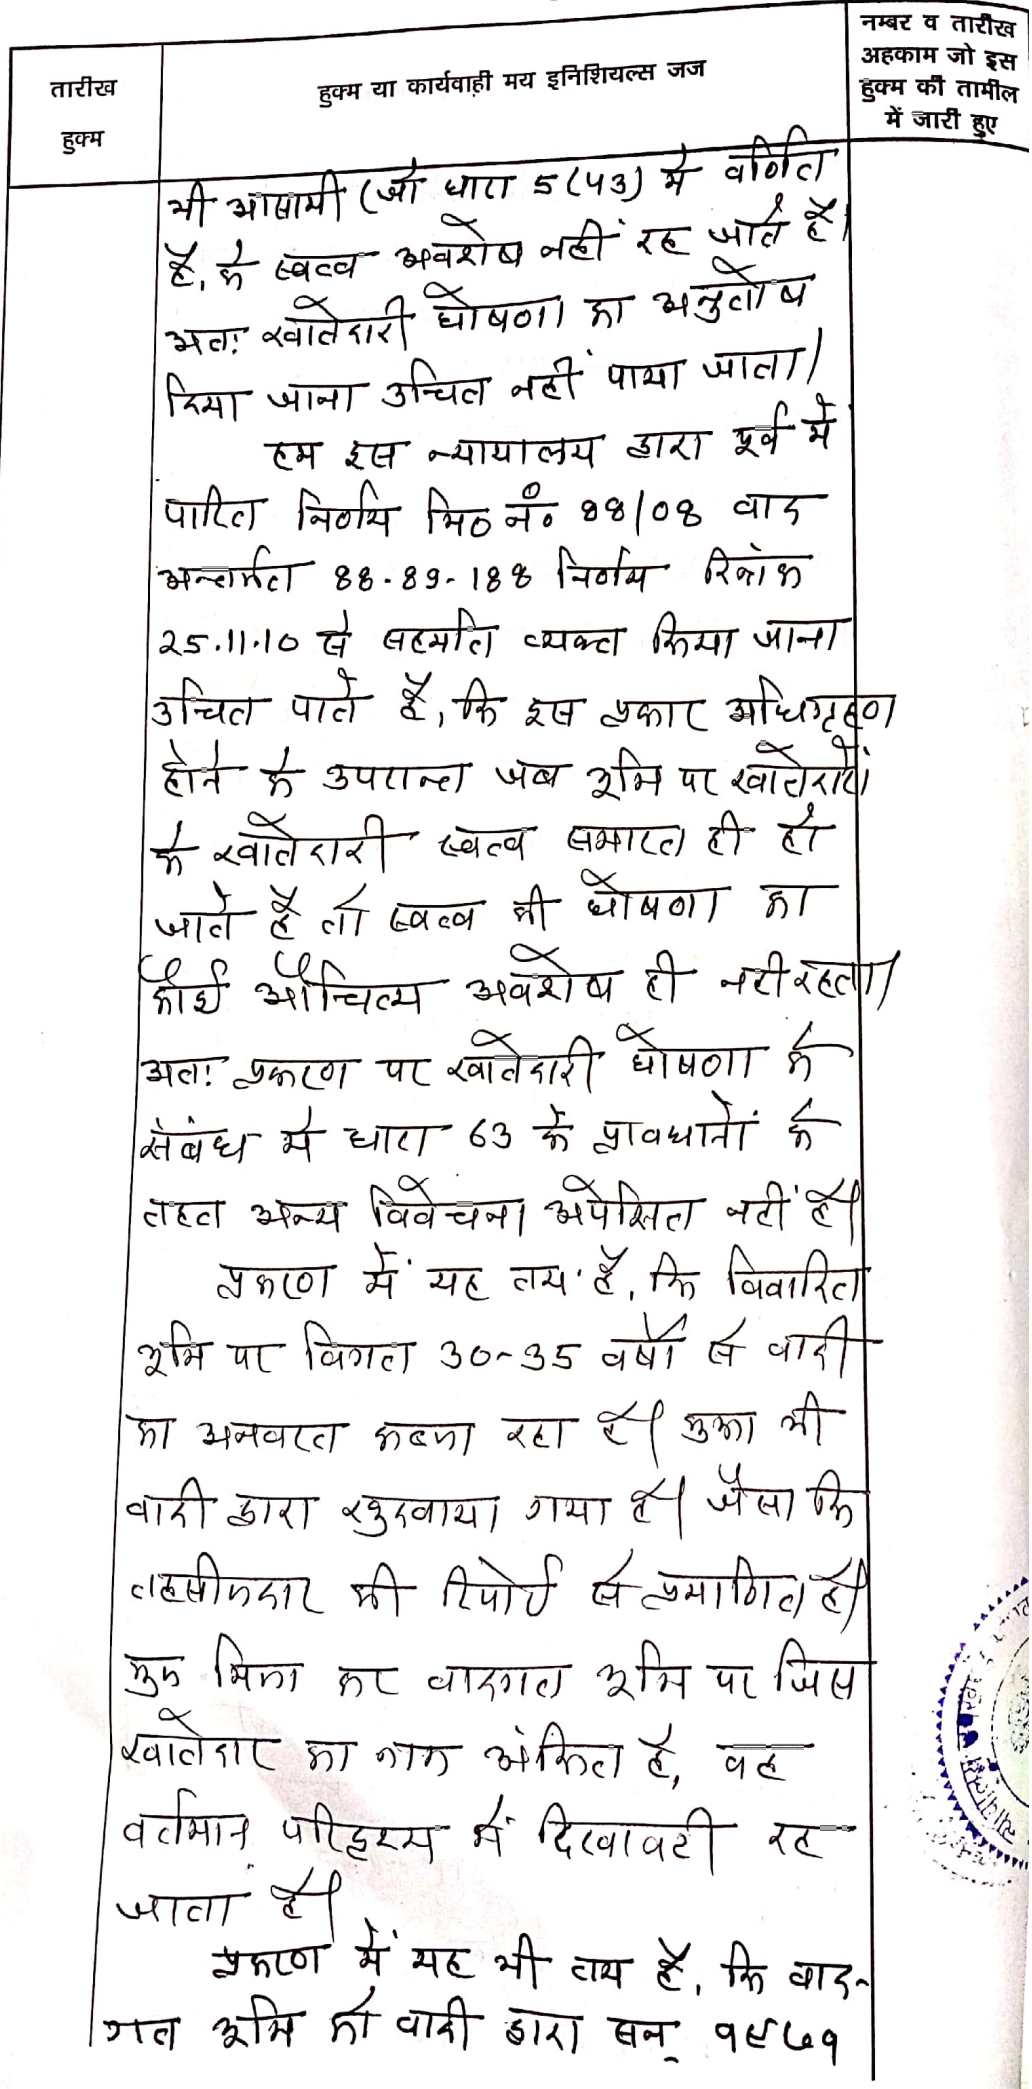 तारीख
हुक्म
हुक्म या कार्यवाही मय इनिशियल्स जज
नम्बर व तारीख
अहकाम जो इस
हुक्म की तामील
में जारी हुए
भी आसामी (जो धारा 5(43) मे वर्णित
है, के स्वत्व अवशेष नहीं रह जाते है।
अतः खातेदारी घोषणा का अनुतोष
दिया जाना उचित नहीं पाया जाता।
हम इस न्यायालय द्वारा पूर्व में
पारित निर्णय मि० नं० 88/08 वाद
अन्तर्गत 88-89-188 निर्णय दिनांक
25.11.10 से सहमति व्यक्त किया जाना
उचित पाते है, कि इस प्रकार अधिग्रहण
होने के उपरान्त जब भूमि पर खातेदारों
के खातेदारी स्वत्व समाप्त ही हो
जाते है तो स्वत्व की घोषणा का
कोई औचित्य अवशेष ही नही रहता।
अतः प्रकरण पर खातेदारी घोषणा के
संबंध मे धारा 63 के प्रावधानों के
तहत अन्य विवेचना अपेक्षित नहीं है।
प्रकरण में यह तय है, कि विवादित
भूमि पर विगत 30-35 वर्षो से वादी
का अनवरत कब्जा रहा है। कुआ भी
वादी द्वारा खुदवाया गया है। जैसा कि
तहसीलदार की रिपोर्ट से प्रमाणित है।
कुल मिला कर वादगत भूमि पर जिस
खातेदार का नाम अंकित है, वह
वर्तमान परिदृश्य में दिखावटी रह
जाता है।
प्रकरण में यह भी तय है, कि वाद-
गत भूमि को वादी द्वारा सन् १९७१